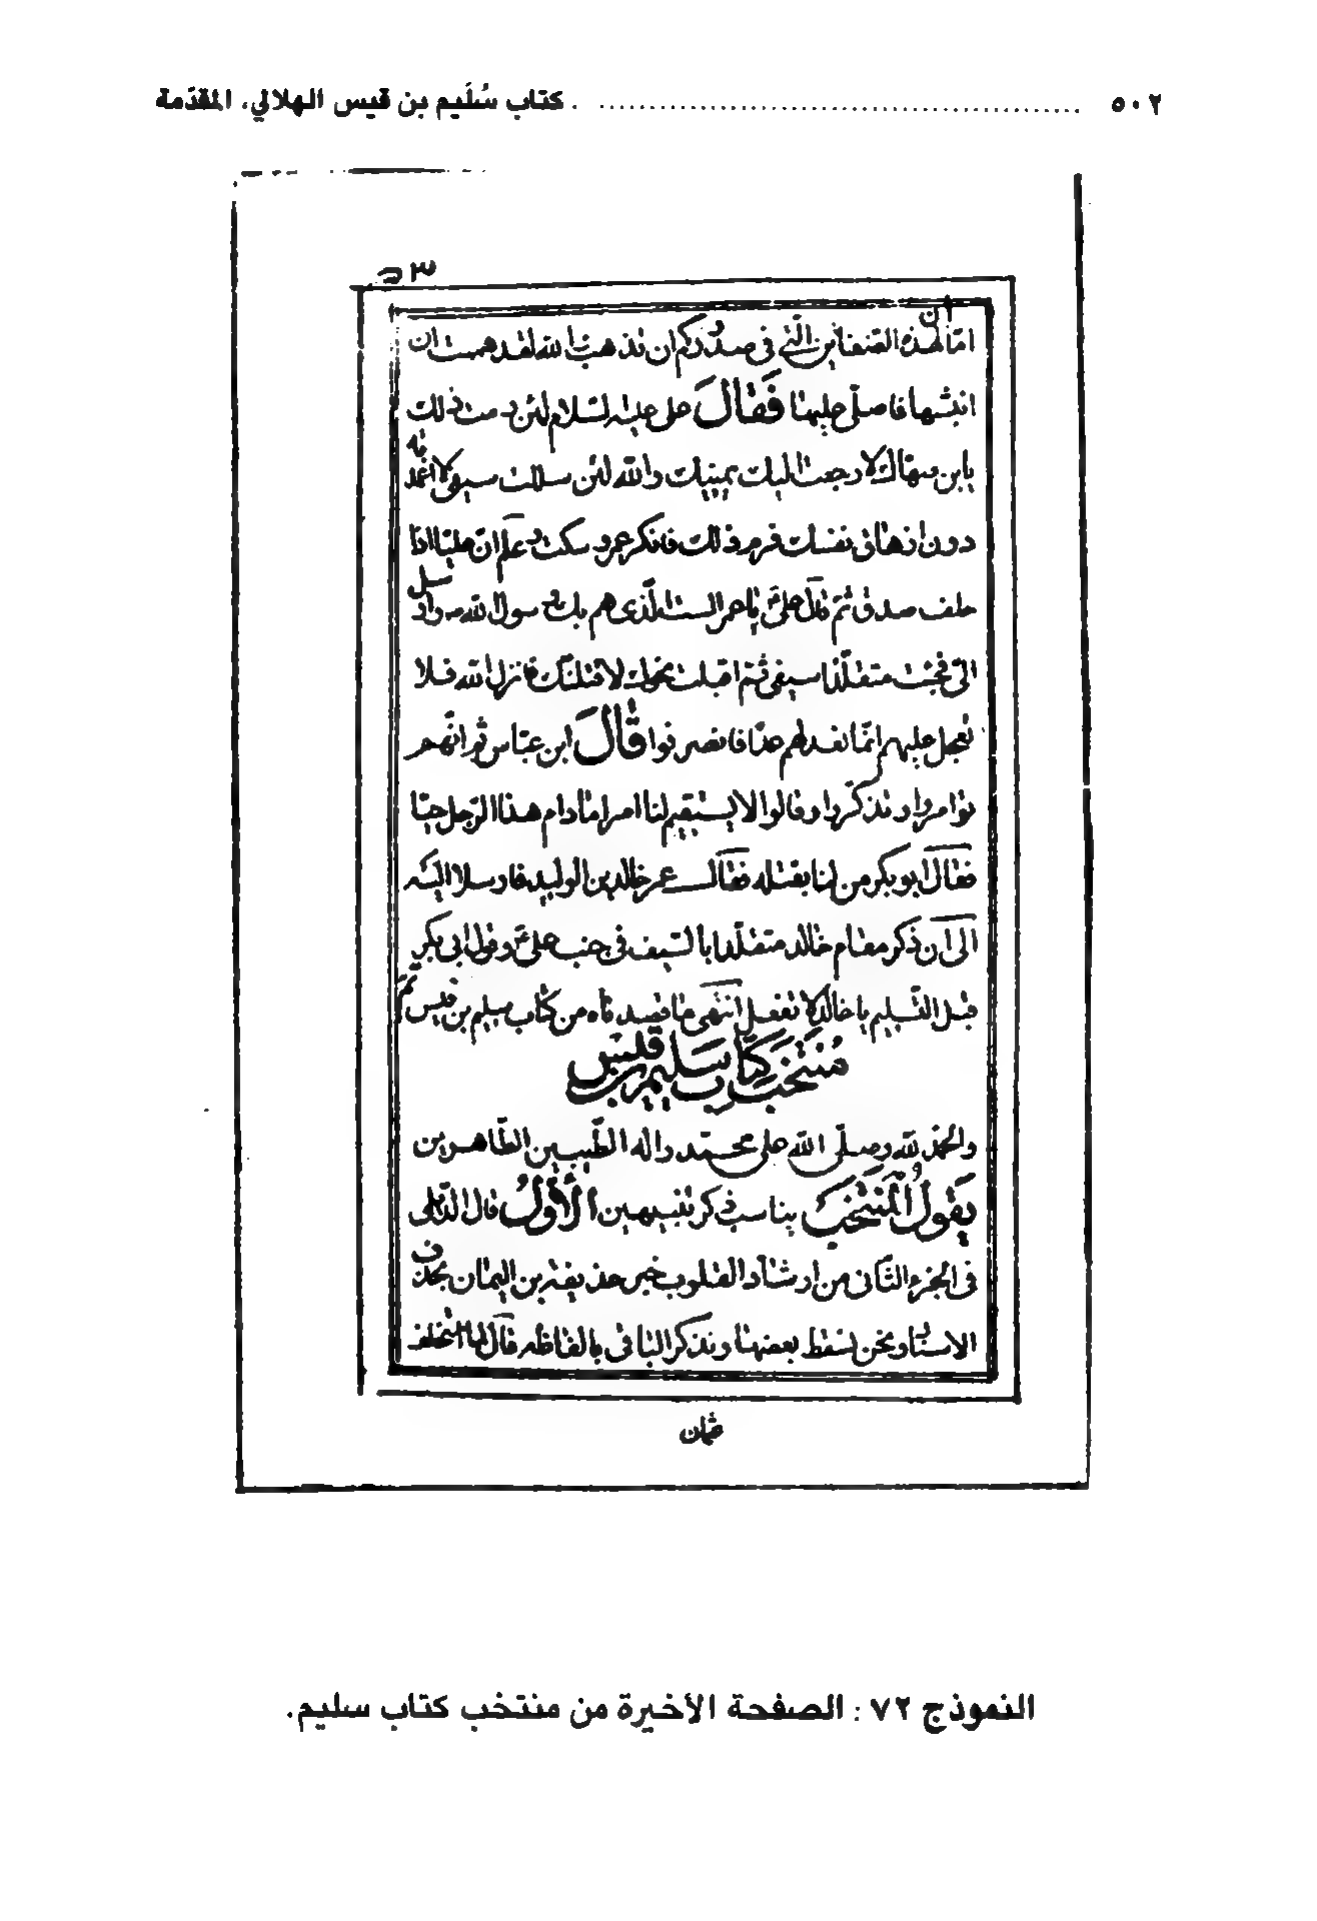 ٥٠٢ ........................................ كتاب سُلَيم بن قيس الهلالي، المقدّمة
٣
ان هذه الضغاين التي في صدوركم ان تذهب والله لقد هممت ان
انبشها فاصلّي عليها فقال علي عليه السلام لئن رمت ذلك
يابن صهاك لا رجعت اليك يمينك والله لئن سللت سيفي لا اغمدته
دون ازهاق نفسك فرم ذلك فانكر عمرو سكت وعلم انّ عليّا اذا
حلف صدق ثمّ قال عليّ يا عمر الست الذى هم بك رسول الله وارسل
اليّ فجئت متقلّدا سيفي ثم اقبلت نحوك لاقتلنّك فانزل الله فلا
تعجل عليهم انّما نعد لهم عدّا فانصرفوا قال ابن عبّاس ثم انّهم
توامروا وتذكّروا وقالوا لا يستقيم لنا امر ما دام هذا الرّجل حيّا
فقال ابو بكر من لنا بقتله فقال عمر خالد بن الوليد فارسلا اليه
الى ان ذكر مقام خالد متقلّدا بالسّيف في جنب عليّ وقول ابي بكر
قبل التّسليم يا خالد لا تفعل انتهى ما قصدناه من كتاب سليم بن قيس تمّ
مُنتَخَب كتَاب سَليم بن قليس
والحمد لله وصلّى الله على محمّد واله الطّيبين الطّاهرين
يقول المنتخب يناسب ذكر تنبيهين الاوّل قال الدّيلمى
في الجزء الثّاني من ارشاد القلوب خبر حذيفة بن اليمان بحذف
الاسناد ونحن نسقط بعضها ونذكر الباقي بالفاظه قال لما استخلف
عثمان
النموذج ٧٢ : الصفحة الأخيرة من منتخب كتاب سليم.